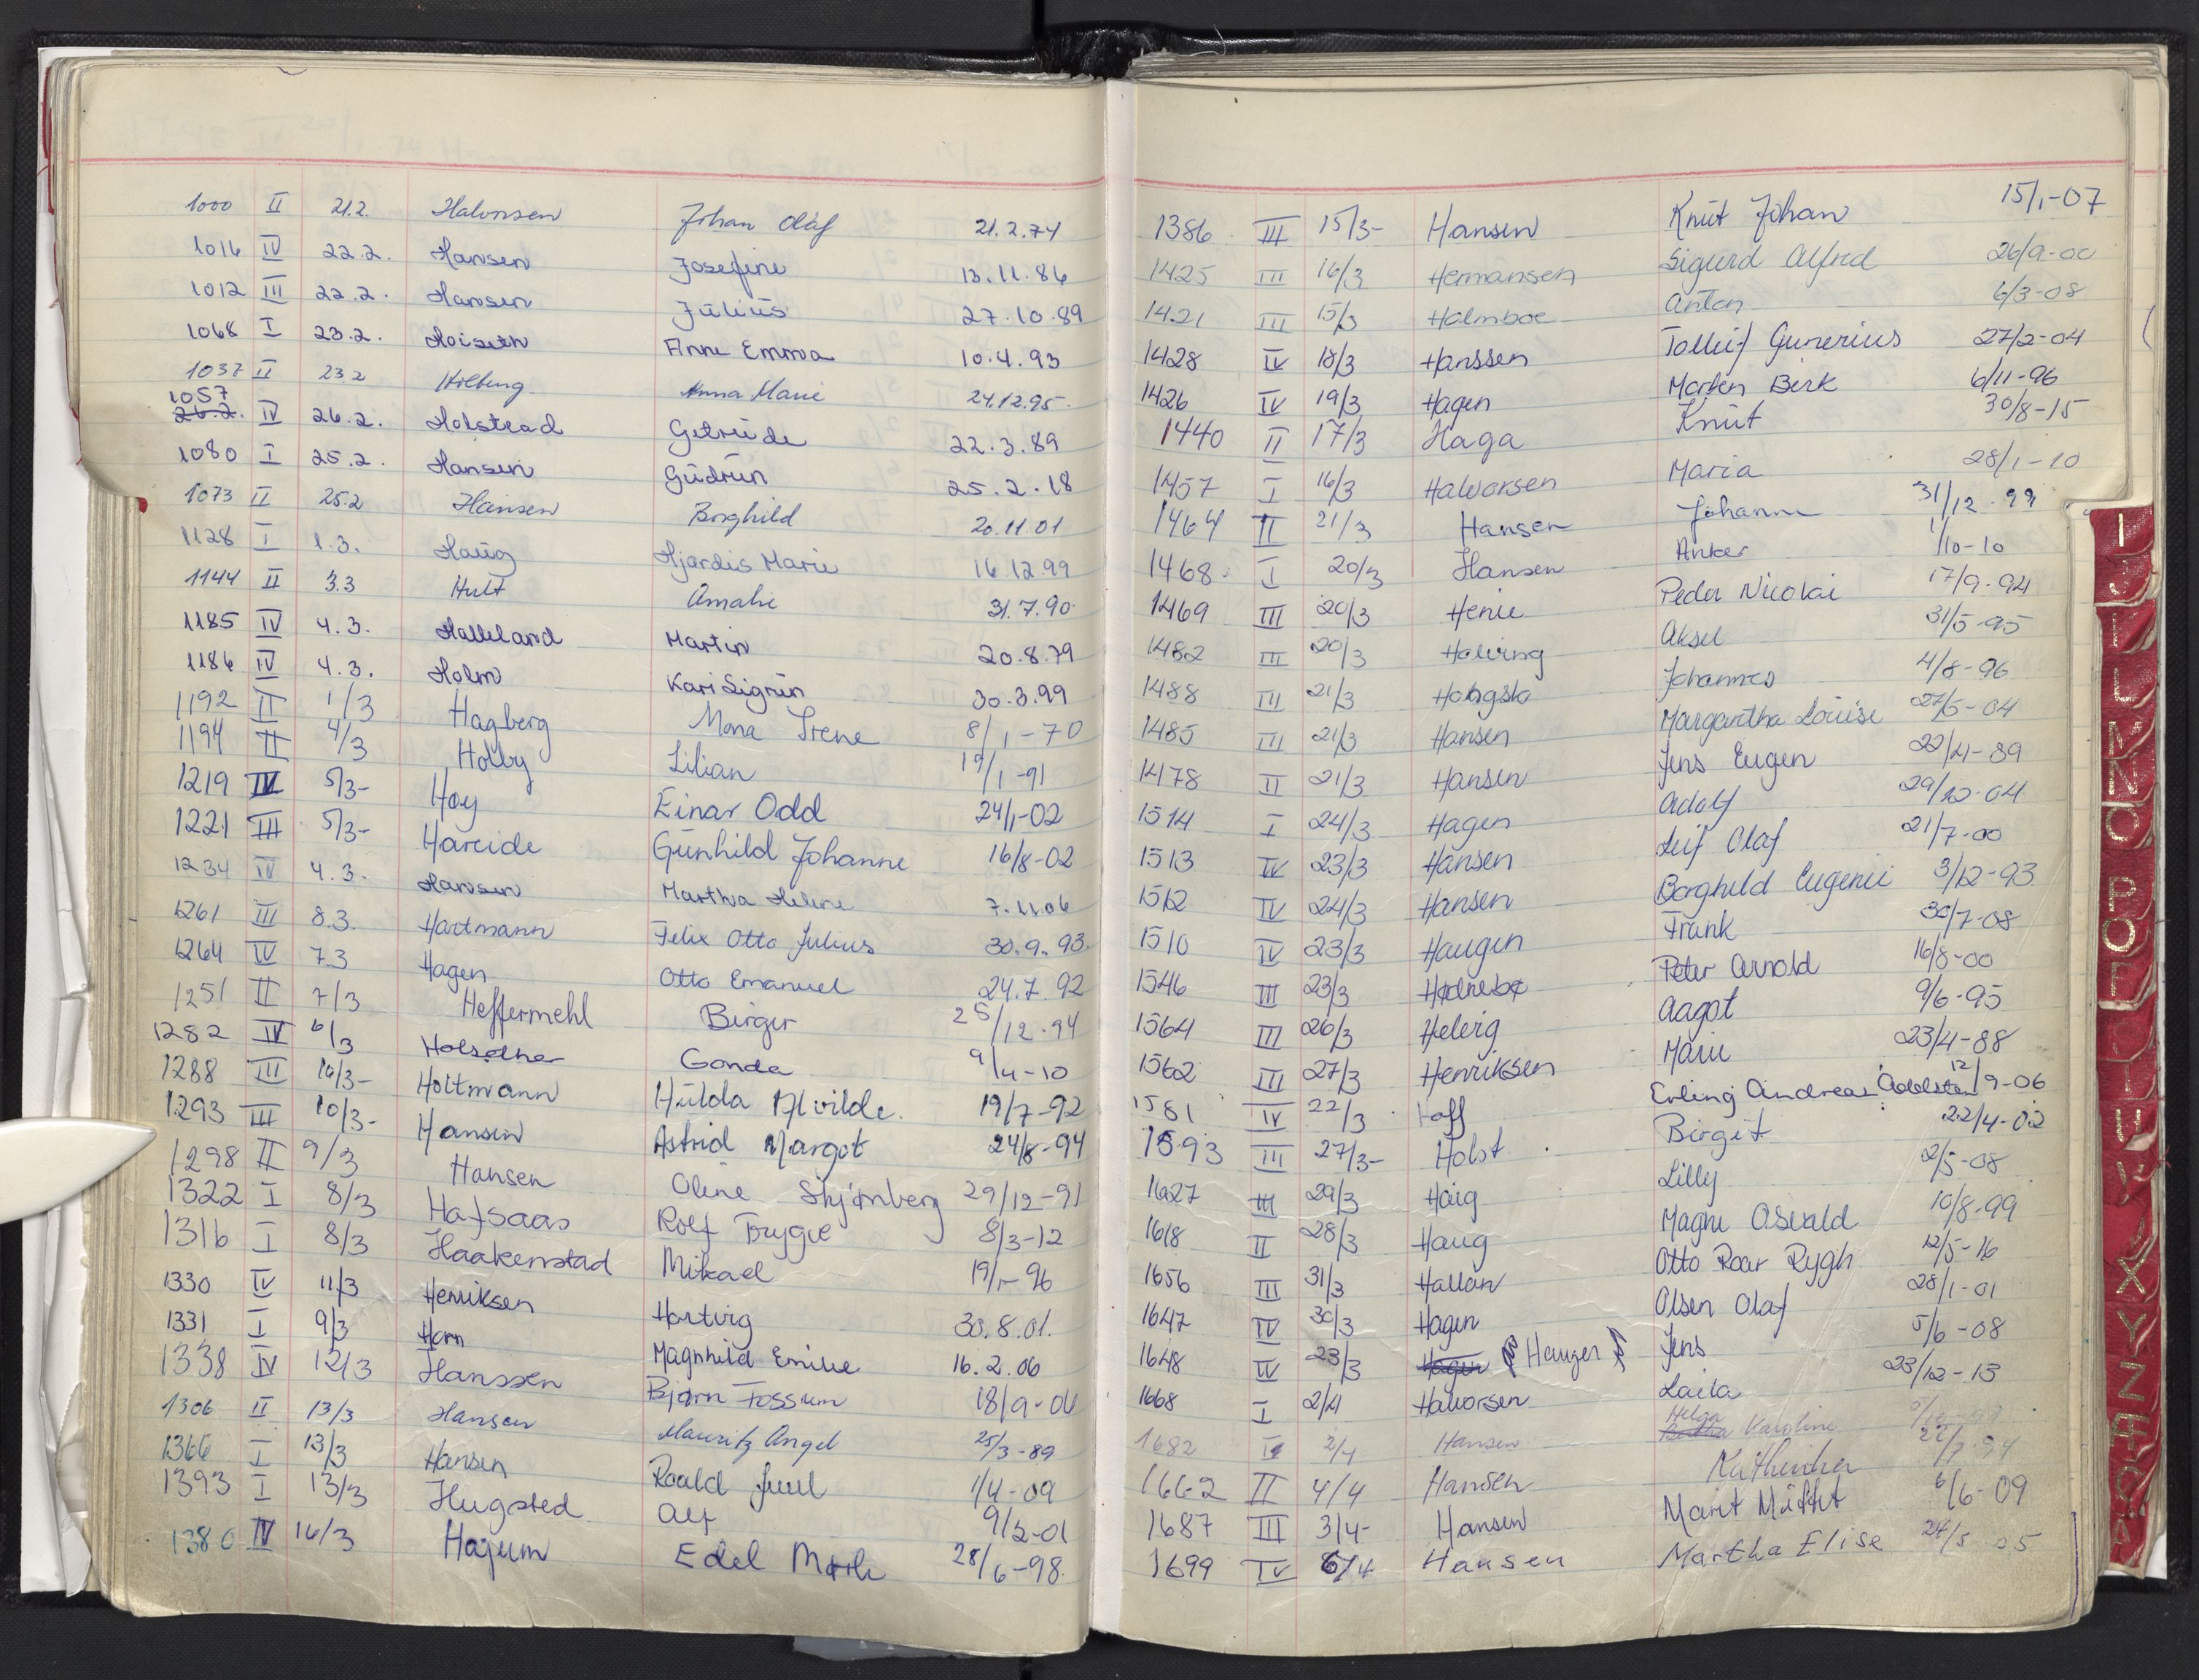 1000 II 21.2. Halvorsen Johan Olaf 21.2.74
1016 IV 22.2. Hansen Josefine 13.11.86
1012 III 22.2. Hansen Julius 27.10.89
1068 I 23.2. Hoiseth Anne Emma 10.4.93
1037 II 23.2 Holberg Anna Marie 24.12.95.
1057
26.2. IV 26.2. Holstead Getrude 22.3.89
1080 I 25.2. Hansen Gudrun 25.2.18
1073 II 25.2 Hansen Borghild 20.11.01
1128 I 1.3. Haug Hjørdis Marie 16.12.99
1144 II 3.3 Hult Amalie 31.7.90
1185 IV 4.3. Halleland Martin 20.8.79
1186 IV 4.3. Holm Kari Sigrun 30.3.99
1192 II 1/3 Hagberg Mona Irene 8/1-70
1194 II 4/3 Holby Lilian 19/1-91
1219 IV 5/3- Høy Einar Odd 24/1-02
1221 III 5/3- Hareide Gunhild Johanne 16/8-02
1234 IV 4.3. Hansen Martha Helene 7.11.06
1261 III 8.3. Hartmann Felix Otto Julius 30.9.93.
1264 IV 7.3 Hagen Otto Emanuel 24.7.92
1251 II 7/3 Heffermehl Birger 25/12-94
1282 IV 6/3 Gonda 9/4-10
1288 III 10/3- Holtmann Hulda Alvilde. 19/7-92
1293 III 10/3- Hansen Astrid Margot 24/8-94
1298 II 9/3 Hansen Oline Stjernberg 29/12-91
1322 I 8/3 Hafsaas Rolf Trygve 8/3-12
1316 I 8/3 Haakenstad Mikael 19/1-96
1330 IV 11/3 Henriksen Hartvig 30.8.01.
1331 I 9/3 Horn Magnhild Emilie 16.2.06
1338 IV 12/3 Hanssen Bjørn Fossum 18/9-01
1306 II 13/3 Hansen Mauritz Angel 25/3-89
1366 I 13/3 Hansen Roald Juul 1/4-09
1393 I 13/3 Hugsted Alf 9/2-01
1380 IV 16/3 Hajum Edel 28/6-98
1386 III 15/3- Hansen Knut Johan 15/1-07
1425 III 16/3 Hermansen Sigurd Alfred 26/9-00
1421 III 15/3 Holmboe Anton 6/3-08
1428 IV 18/3 Hanssen Tolleif Gunerius 27/2-04
1426 IV 19/3 Hagen Morten Berk 6/11-96
1440 II 17/3 Haga Knut 30/8-15
1457 I 16/3 Halvorsen Maria 28/1-10
1464 II 21/3 Hansen Johanne 31/12-99
1468 I 20/3 Hansen Anker 1/10-10
1469 III 20/3 Henie Peder Nicolai 17/9-94
1482 III 20/3 Halving Aksel 31/5-95
1488 III 21/3 Johannes 4/8-96
1485 III 21/3 Hansen Margartha Louise 27/5-04
1478 II 21/3 Hansen Jens Eugen 22/4-89
1514 I 24/3 Hagen Adolf 29/12-04
1513 IV 23/3 Hansen Leif Olaf 21/7-00
1512 IV 24/3 Hansen Borghild Eugenie 3/12-93
1510 IV 23/3 Haugen Frank 30/7-08
1546 III 23/3 Hødnebø Peter Arnold 16/8-00
1564 III 26/3 Helvig Aagot 9/6-95
1562 III 27/3 Henriksen Marie 23/4-88
1581 IV 22/3 Hoff Erling Andreas Adelsten 12/9-06
1593 III 27/3- Holst Birgit 22/4-02
1627 III 29/3 Haig Lilly 2/5-08
1618 II 28/3 Haug Magne Osvald 10/8-99
1656 III 31/3 Hallan Otto Roar Rygh 12/5-16
1647 IV 30/3 Hagen Olsen Olaf 28/1-01
1648 IV 23/3 Hagen Hauger Jens 5/6-08
1668 I 2/4 Halvorsen Laila 23/12-13
1682 I 2/4 Hansen Helga Karoline
1662 II 4/4 Hansen Kathinka 22/7-94
1687 III 3/4- Hansen Marit 6/6-09
1699 IV 6/4 Hansen Martha Elise 24/5 05
I
J
L
N
O
P
Q
X
Y
Z